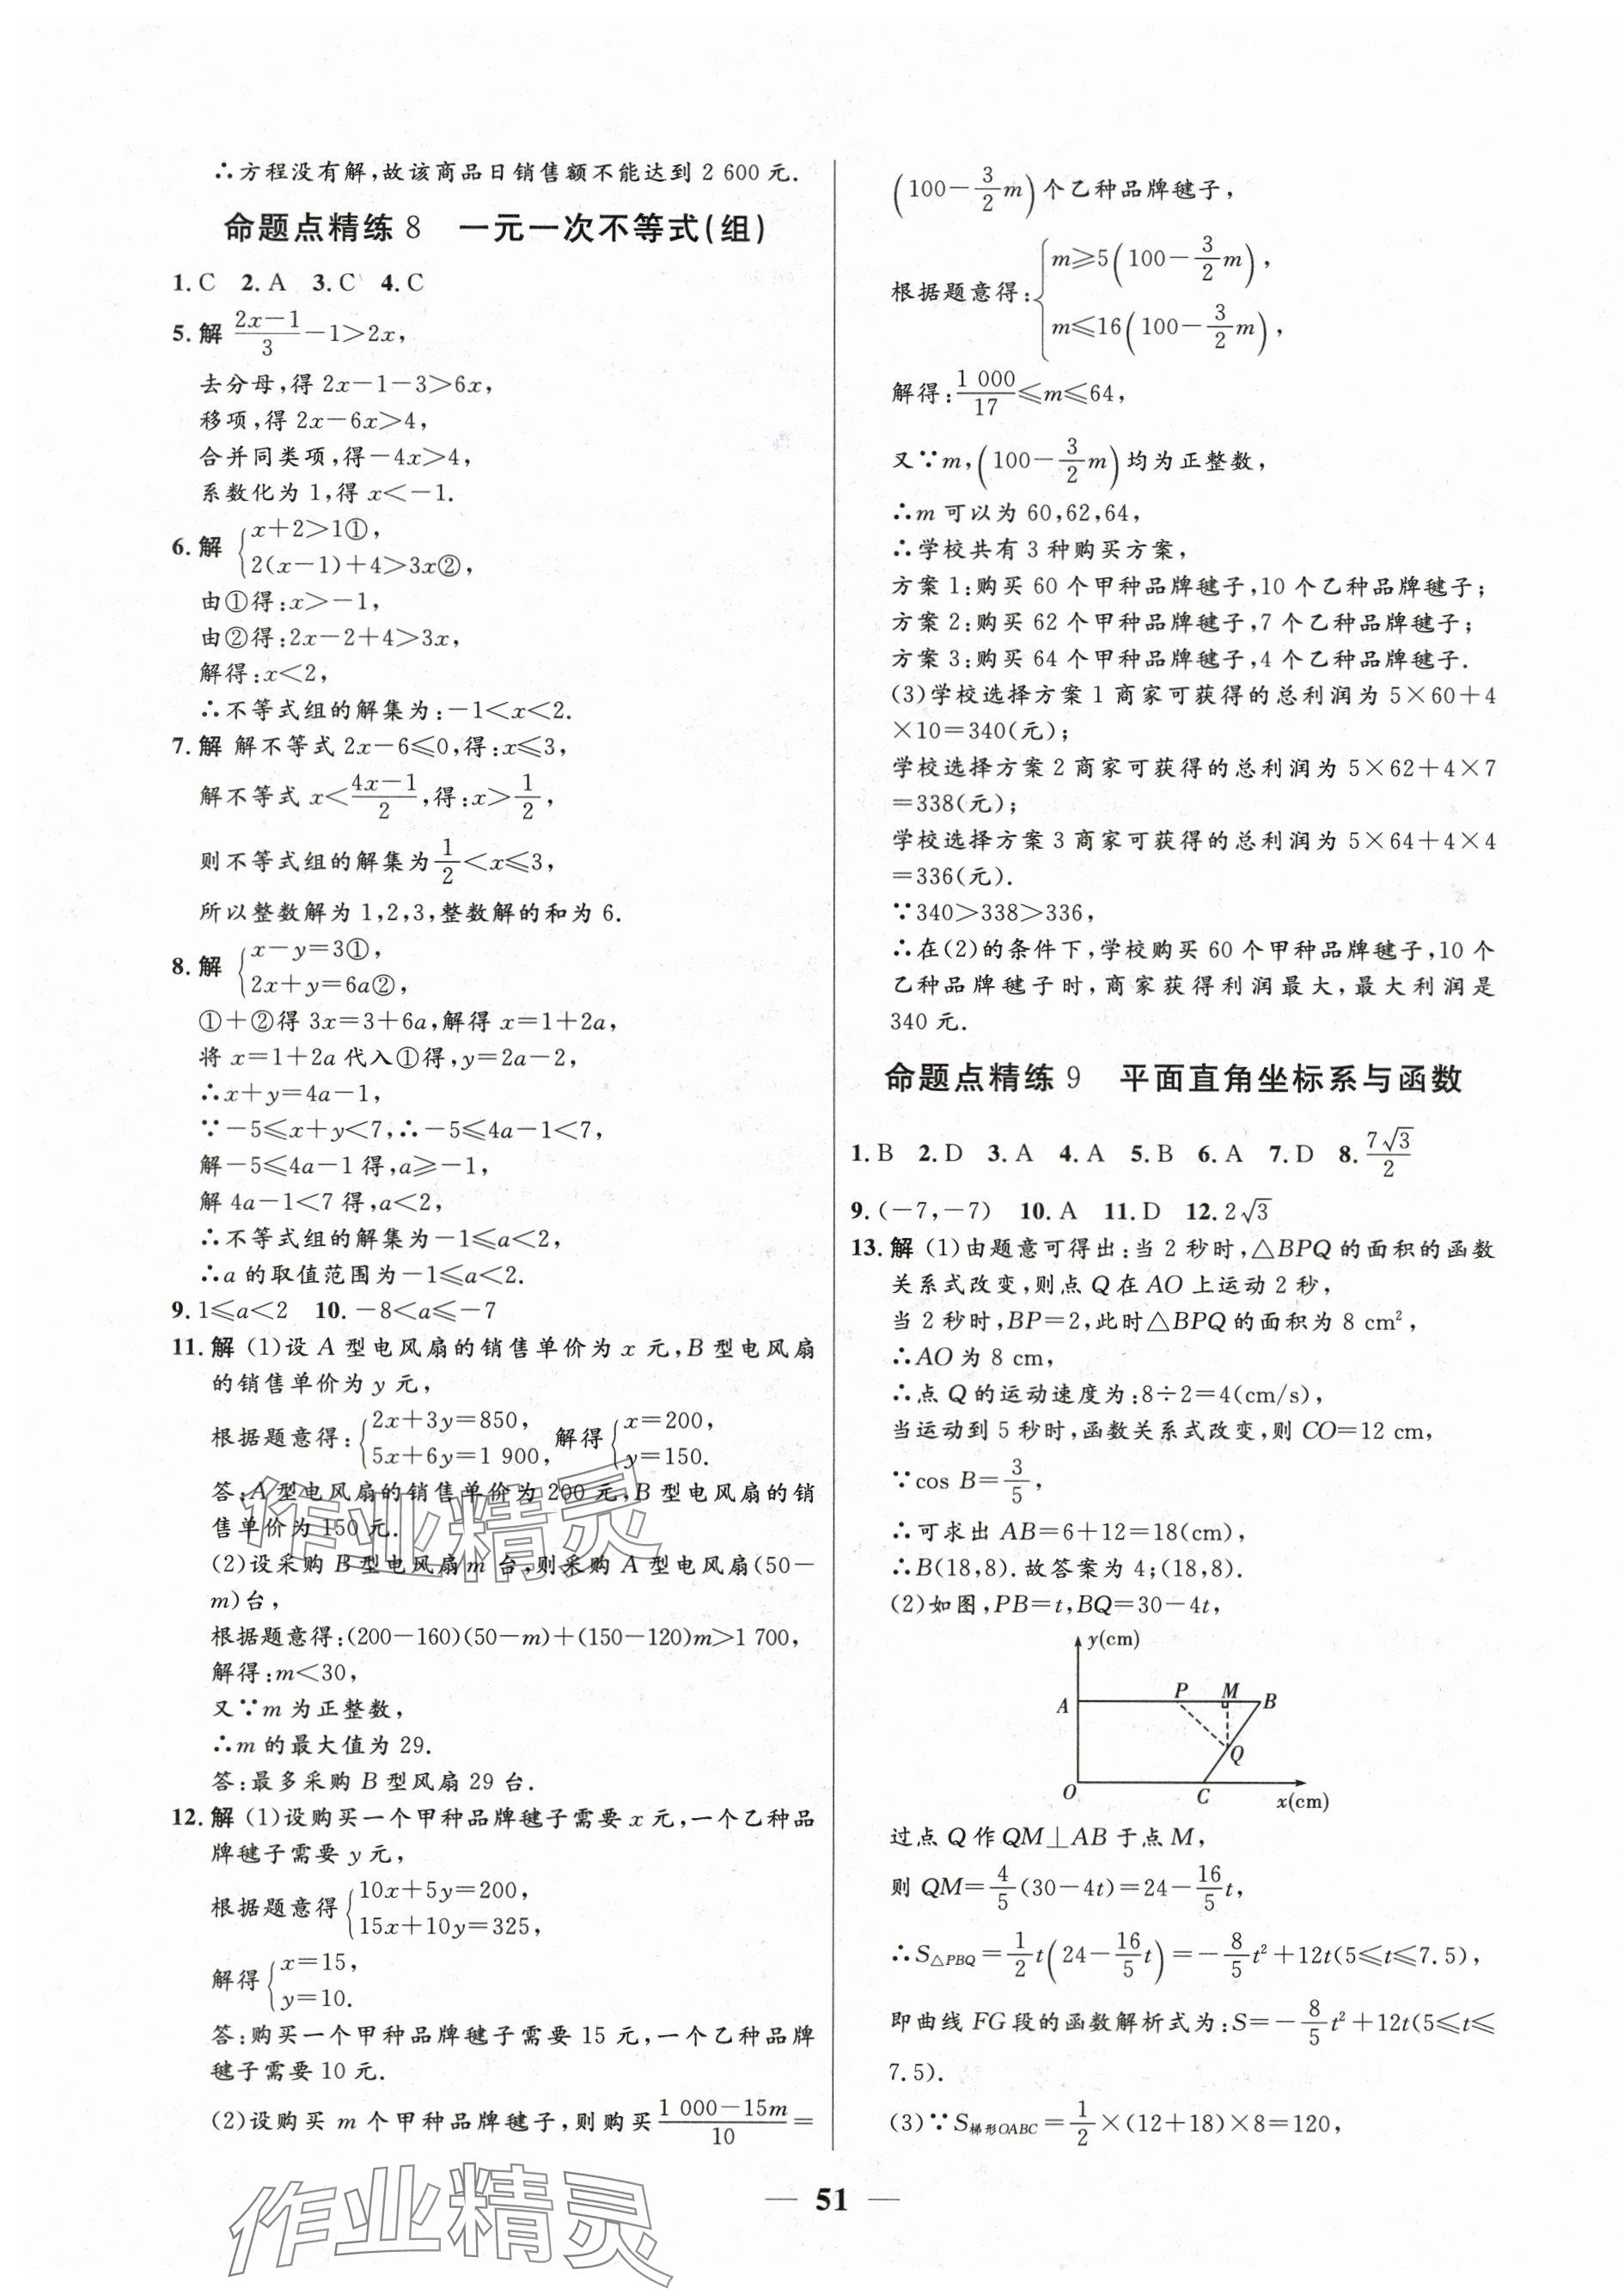 ∴方程没有解,故该商品日销售额不能达到 2 600 元.
命题点精练 8　一元一次不等式(组)
1. C　2. A　3. C　4. C
5. 解 (2x-1)/3-1>2x,
去分母,得 2x-1-3>6x,
移项,得 2x-6x>4,
合并同类项,得-4x>4,
系数化为 1,得 x<-1.
6. 解 {x+2>1①,
2(x-1)+4>3x②,
由①得:x>-1,
由②得:2x-2+4>3x,
解得:x<2,
∴不等式组的解集为:-1<x<2.
7. 解 解不等式 2x-6⩽0,得:x⩽3,
解不等式 x<(4x-1)/2,得:x>1/2,
则不等式组的解集为 1/2<x⩽3,
所以整数解为 1,2,3,整数解的和为 6.
8. 解 {x-y=3①,
2x+y=6a②,
①+②得 3x=3+6a,解得 x=1+2a,
将 x=1+2a 代入①得,y=2a-2,
∴x+y=4a-1,
∵-5⩽x+y<7,∴-5⩽4a-1<7,
解-5⩽4a-1 得,a⩾-1,
解 4a-1<7 得,a<2,
∴不等式组的解集为-1⩽a<2,
∴a 的取值范围为-1⩽a<2.
9. 1⩽a<2　10. -8<a⩽-7
11. 解 (1)设 A 型电风扇的销售单价为 x 元,B 型电风扇
的销售单价为 y 元,
根据题意得:{2x+3y=850, 5x+6y=1 900, 解得{x=200, y=150.
答:A 型电风扇的销售单价为 200 元,B 型电风扇的销
售单价为 150 元.
(2)设采购 B 型电风扇 m 台,则采购 A 型电风扇(50-
m)台,
根据题意得:(200-160)(50-m)+(150-120)m>1 700,
解得:m<30,
又∵m 为正整数,
∴m 的最大值为 29.
答:最多采购 B 型风扇 29 台.
12. 解 (1)设购买一个甲种品牌毽子需要 x 元,一个乙种品
牌毽子需要 y 元,
根据题意得{10x+5y=200,
15x+10y=325,
解得{x=15,
y=10.
答:购买一个甲种品牌毽子需要 15 元,一个乙种品牌
毽子需要 10 元.
(2)设购买 m 个甲种品牌毽子,则购买(1 000-15m)/10=
(100-3/2m)个乙种品牌毽子,
根据题意得:{m⩾5(100-3/2m),
m⩽16(100-3/2m),
解得:1 000/17⩽m⩽64,
又∵m,(100-3/2m)均为正整数,
∴m 可以为 60,62,64,
∴学校共有 3 种购买方案,
方案 1:购买 60 个甲种品牌毽子,10 个乙种品牌毽子;
方案 2:购买 62 个甲种品牌毽子,7 个乙种品牌毽子;
方案 3:购买 64 个甲种品牌毽子,4 个乙种品牌毽子.
(3)学校选择方案 1 商家可获得的总利润为 5×60+4
×10=340(元);
学校选择方案 2 商家可获得的总利润为 5×62+4×7
=338(元);
学校选择方案 3 商家可获得的总利润为 5×64+4×4
=336(元).
∵340>338>336,
∴在(2)的条件下,学校购买 60 个甲种品牌毽子,10 个
乙种品牌毽子时,商家获得利润最大,最大利润是
340 元.
命题点精练 9　平面直角坐标系与函数
1. B　2. D　3. A　4. A　5. B　6. A　7. D　8. 7√3/2
9. (-7,-7)　10. A　11. D　12. 2√3
13. 解 (1)由题意可得出:当 2 秒时,△BPQ 的面积的函数
关系式改变,则点 Q 在 AO 上运动 2 秒,
当 2 秒时,BP=2,此时△BPQ 的面积为 8 cm²,
∴AO 为 8 cm,
∴点 Q 的运动速度为:8÷2=4(cm/s),
当运动到 5 秒时,函数关系式改变,则 CO=12 cm,
∵cos B=3/5,
∴可求出 AB=6+12=18(cm),
∴B(18,8).故答案为 4;(18,8).
(2)如图,PB=t,BQ=30-4t,
y(cm)
A P M B
Q
O C x(cm)
过点 Q 作 QM⊥AB 于点 M,
则 QM=4/5(30-4t)=24-16/5t,
∴S△PBQ=1/2t(24-16/5t)=-8/5t²+12t(5⩽t⩽7.5),
即曲线 FG 段的函数解析式为:S=-8/5t²+12t(5⩽t⩽
7.5).
(3)∵S梯形OABC=1/2×(12+18)×8=120,
— 51 —
作业精灵
作业精灵